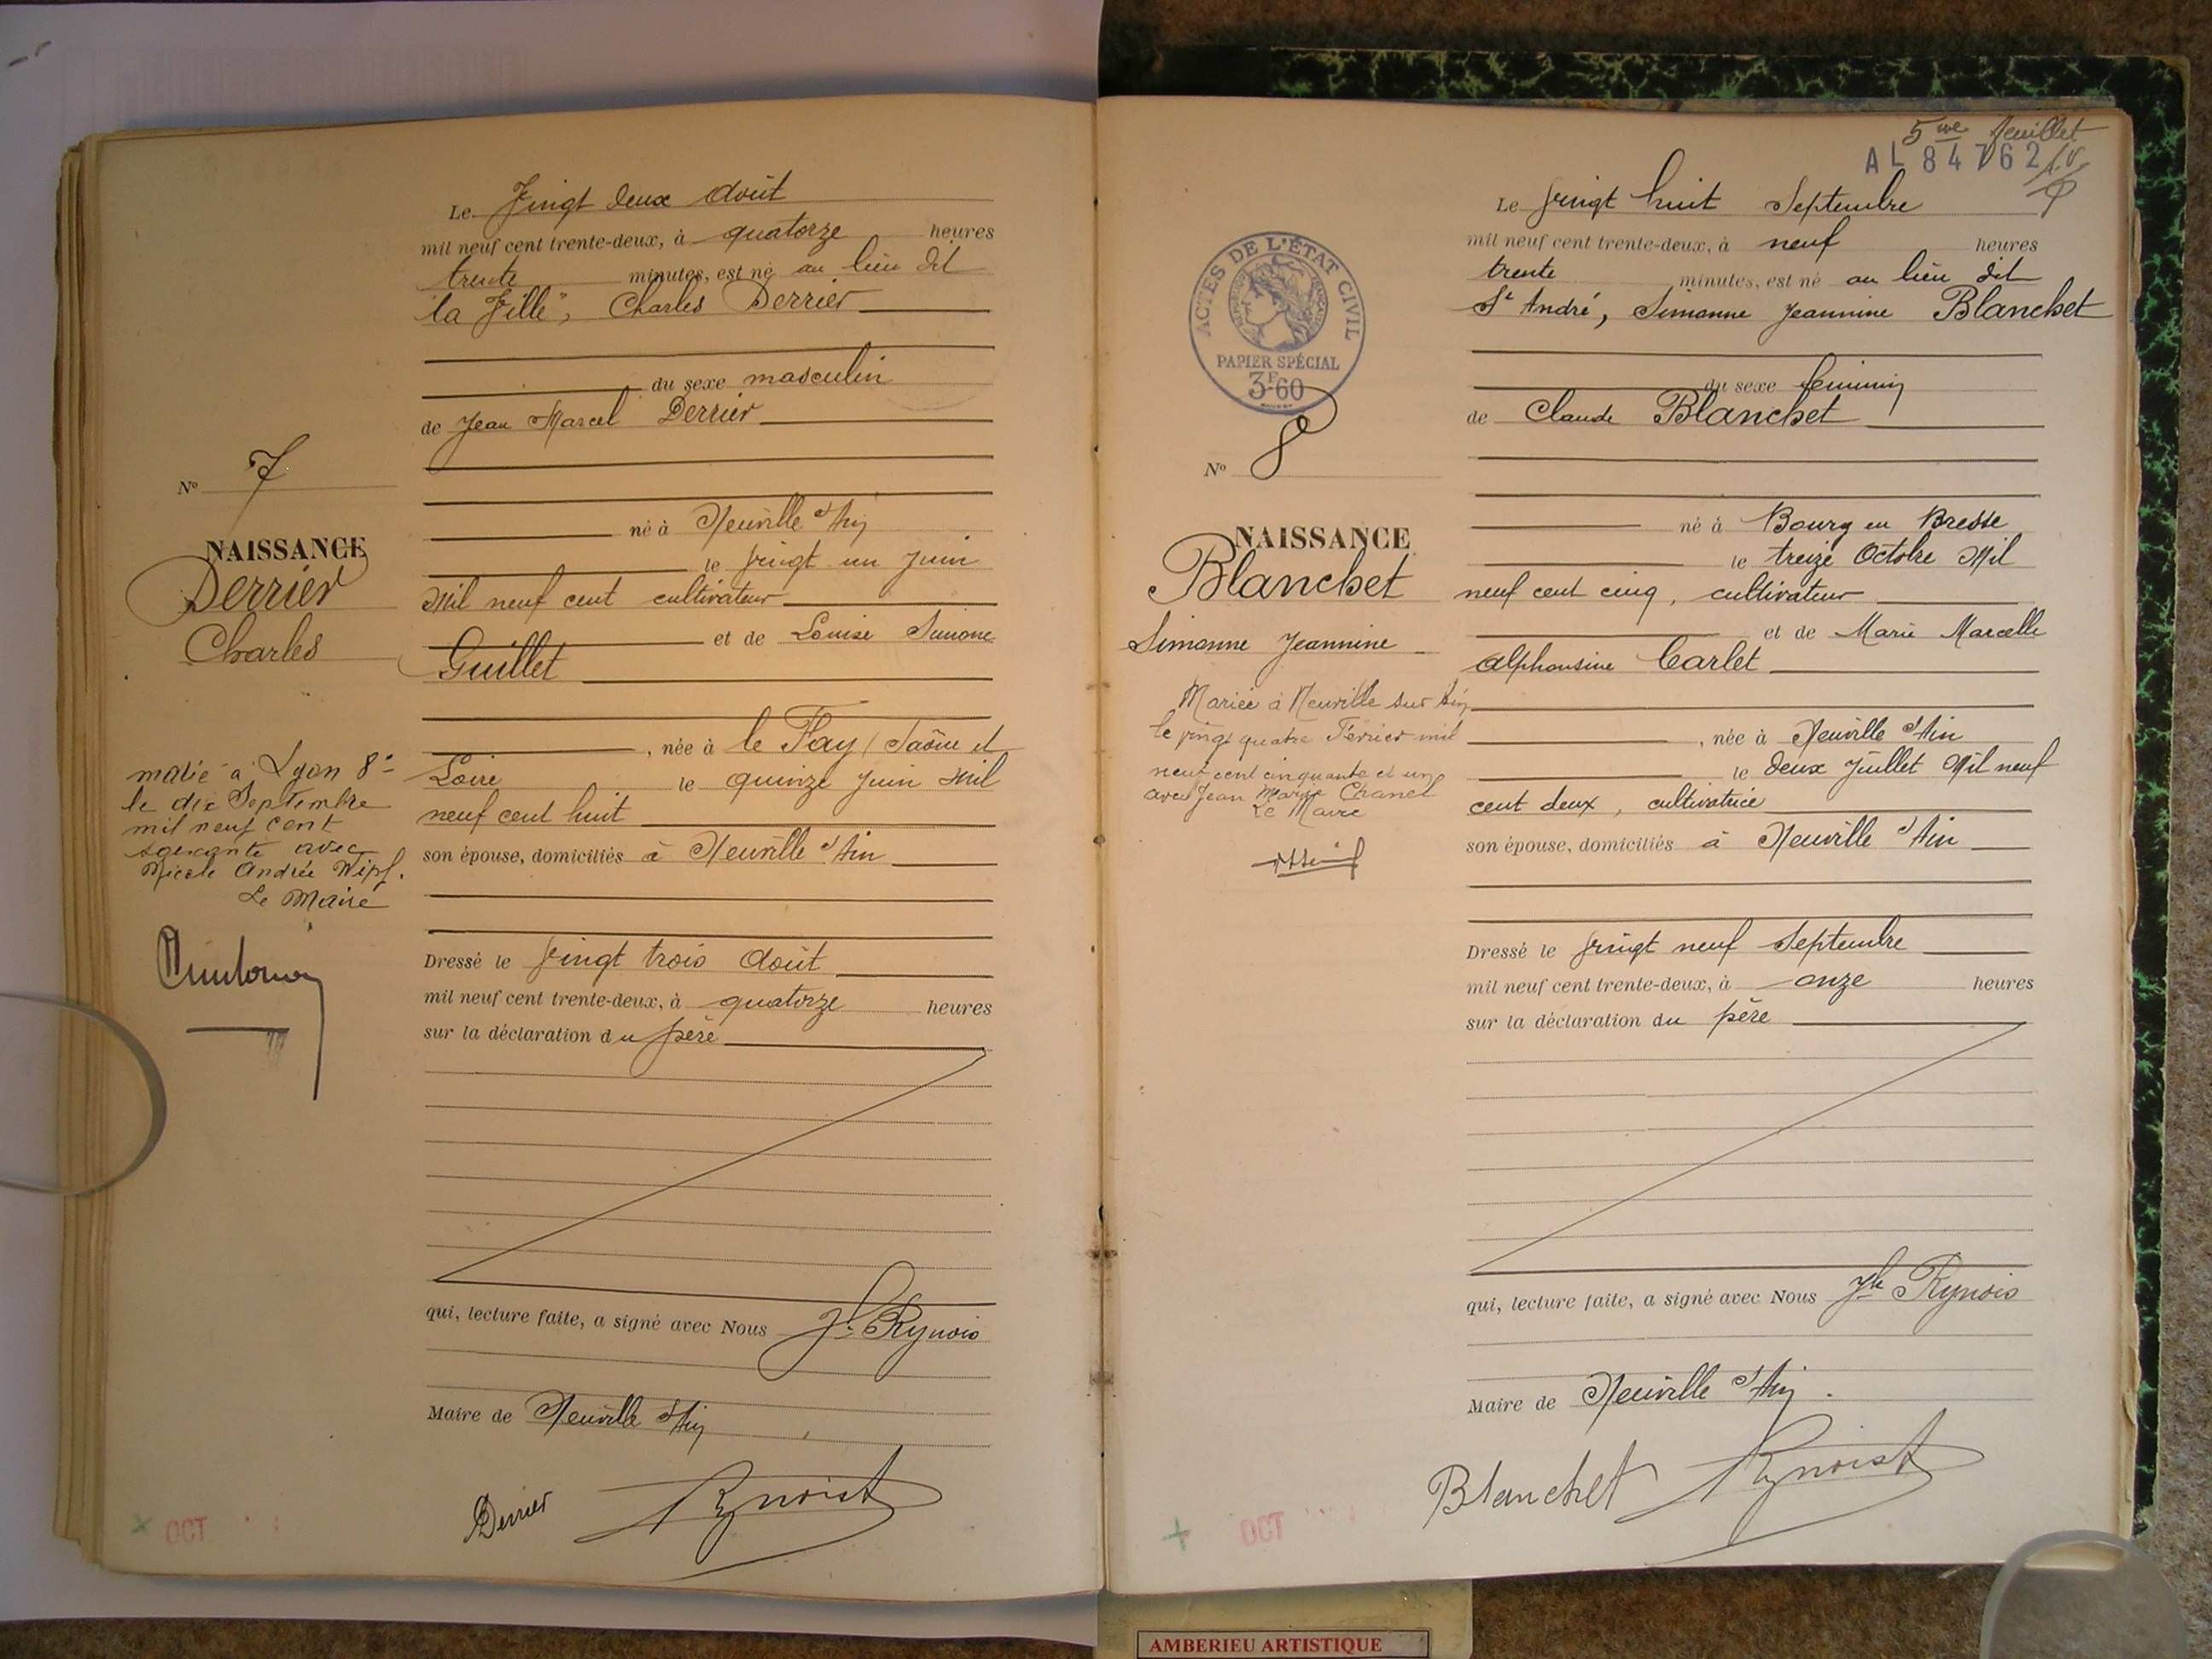 Le Vingt deux Août
mil neuf cent trente-deux, à quatorze heures
trente minutes, est né au lieu dit
"la Ville", Charles Derrier
du sexe masculin
de Jean Marcel Derrier
né à Neuville s/ Ain
le vingt un Juin
Mil neuf cent cultivateur
et de Louise Simone
Guillet
, née à le Fay (Saône et
Loire le quinze Juin Mil
neuf cent huit
son épouse, domiciliés à Neuville s/ Ain
Dressé le vingt trois Août
mil neuf cent trente-deux, à quatorze heures
sur la déclaration du père
qui, lecture faite, a signé avec Nous Jh Rynois
Maire de Neuville s/ Ain
Derrier Rynoist
No 7
NAISSANCE
Derrier
Charles
marié à Lyon 8e
le dix Septembre
mil neuf cent
soixante avec
Nicole Andrée Wipf.
Le Maire
OCT
5me feuillet
AL 84762
Le vingt huit Septembre
mil neuf cent trente-deux, à neuf heures
trente minutes, est né au lieu dit
St André, Simonne Jeannine Blanchet
du sexe feminin
de Claude Blanchet
né à Bourg en Bresse
le treize Octobre Mil
neuf cent cinq, cultivateur
et de Marie Marcelle
Alphonsine Carlet
, née à Neuville s/ Ain
le deux Juillet Mil neuf
cent deux, cultivatrice
son épouse, domiciliés à Neuville s/ Ain
Dressé le vingt neuf Septembre
mil neuf cent trente-deux, à onze heures
sur la déclaration du père
qui, lecture faite, a signé avec Nous Jh Rynois
Maire de Neuville s/ Ain.
Blanchet Rynoist
ACTES DE L'ÉTAT CIVIL
RÉPUBLIQUE FRANÇAISE
PAPIER SPÉCIAL
3F60
No 8
NAISSANCE
Blanchet
Simonne Jeannine
Mariée à Neuville sur Ain
le vingt quatre Février mil
neuf cent cinquante et un
avec Jean Marie Chanel
Le Maire
OCT
AMBERIEU ARTISTIQUE